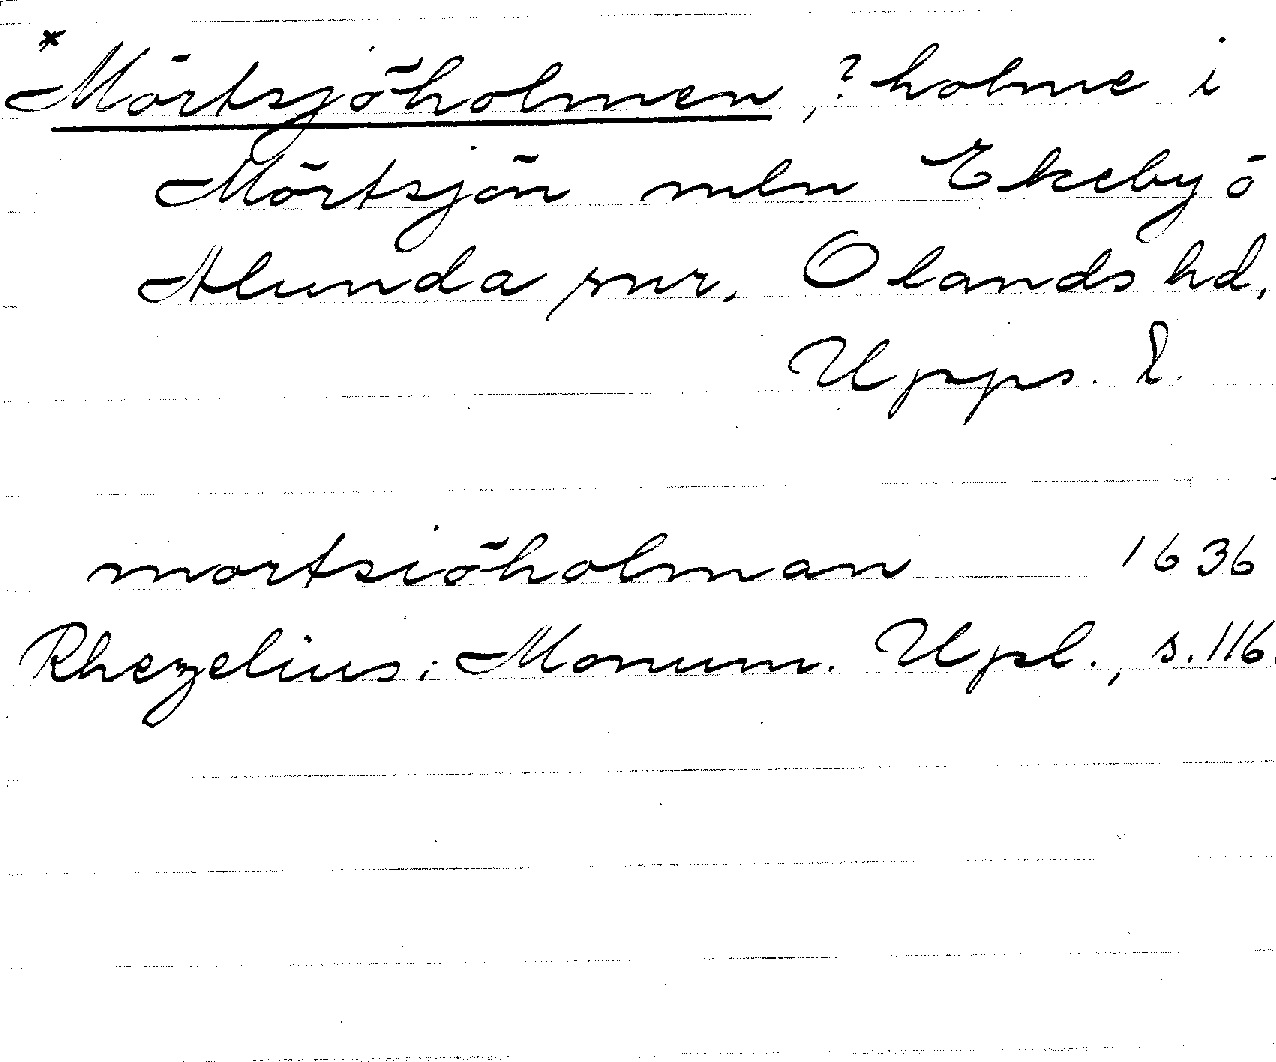 *Mörtsjöholmen, ? holme i
Mörtsjön mln Ekeby o
Alunda snr, Olands hd,
Upps. l.
mortsiöholman 1636
Rhezelius: Monum. Upl., s. 116.